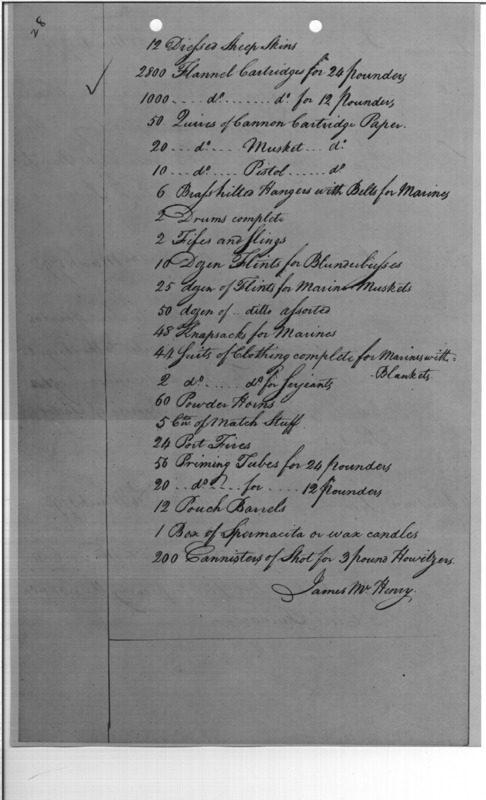 28
12 Dressed Sheep Skins
2800 Flannel Cartridges for 24 pounders
1000 .... do ....... do for 12 Pounders
50 Quires of Cannon Cartridge Paper.
20 .. do .... Musket ... do
10 ... do .... Pistol ...... do
6 Brass hilted Hangers with Belts for Marines
2 Drums complete
2 Fifes and slings
10 Dozen Flints for Blunderbusses
25 dozen of Flints for Marine Muskets
50 dozen of .. ditto assorted
48 Knapsacks for Marines
44 Suits of Clothing complete for Marines with
Blankets
2 do ..... do for Serjeants
60 Powder Horns
5 Cwt of Match Stuff
24 Port Fires
56 Priming Tubes for 24 pounders
20 .. do .... for .... 12 pounders
12 Pouch Barrels
1 Box of Spermacita or wax candles
200 Cannisters of Shot for 3 pound Howitzers.
James McHenry.